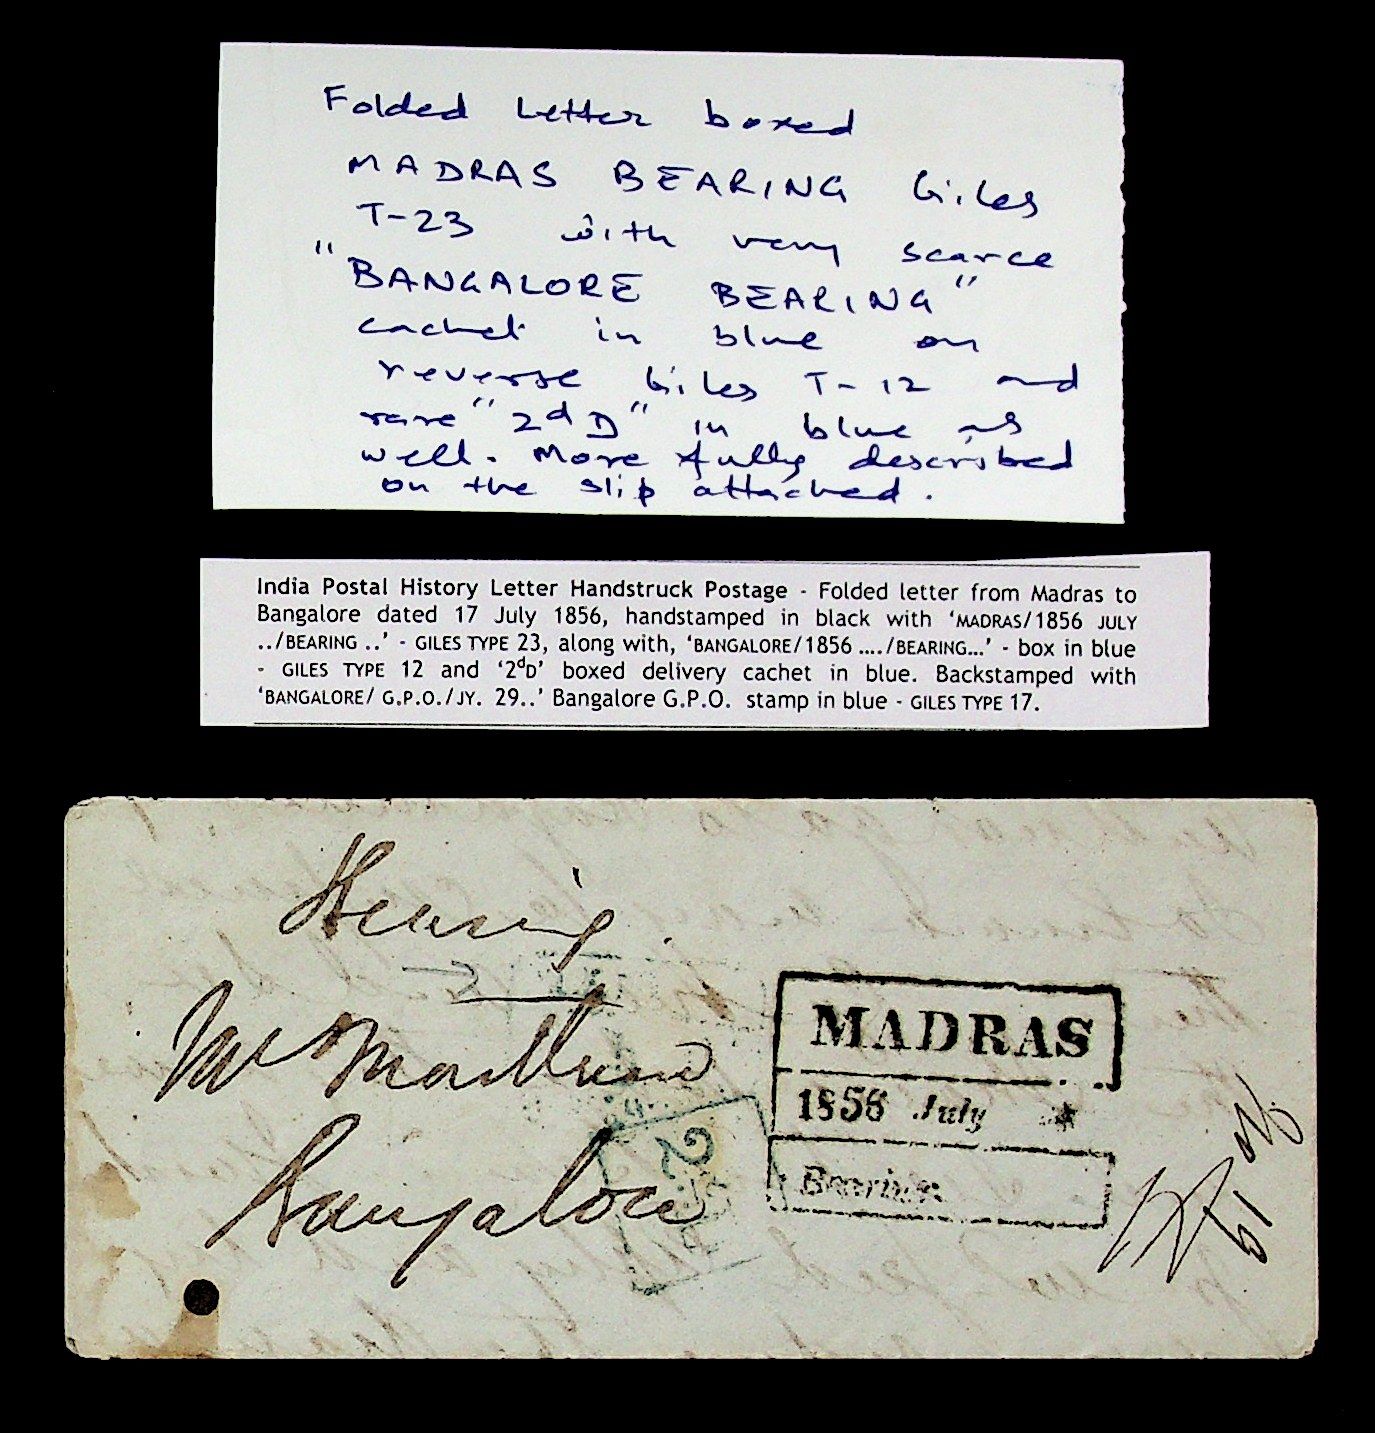 Folded Letter boxed
MADRAS BEARING Giles
T-23 with very scarce
"BANGALORE BEARING"
cachet in blue on
reverse Giles T-12 and
rare "2d D" in blue as
well. More fully described
on the slip attached.
India Postal History Letter Handstruck Postage - Folded letter from Madras to
Bangalore dated 17 July 1856, handstamped in black with ‘MADRAS/1856 JULY
../BEARING ..’ - GILES TYPE 23, along with, ‘BANGALORE/1856 ..../BEARING...’ - box in blue
- GILES TYPE 12 and ‘2dD’ boxed delivery cachet in blue. Backstamped with
‘BANGALORE/ G.P.O./JY. 29..’ Bangalore G.P.O. stamp in blue - GILES TYPE 17.
Bearing.
Bangalore
MADRAS
1856 July
Bearing
2